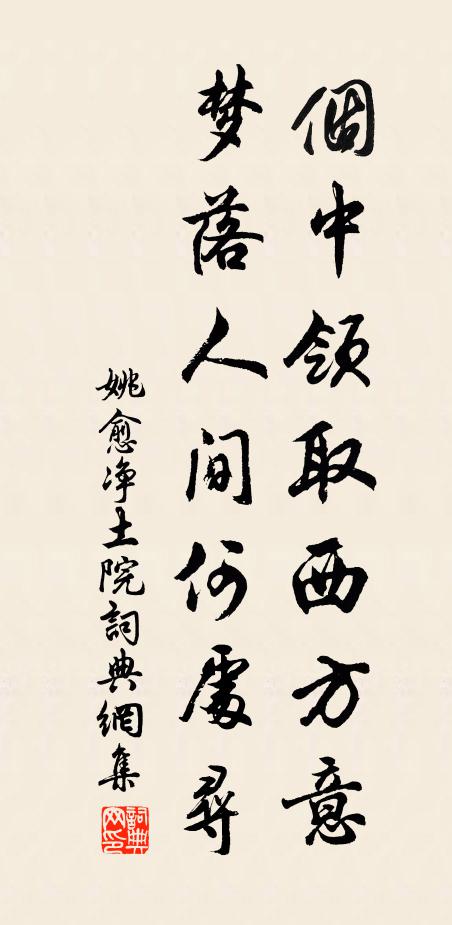 個中領取西方意
梦落人间何處尋
姚愈净土院詞典網集
詞典网印